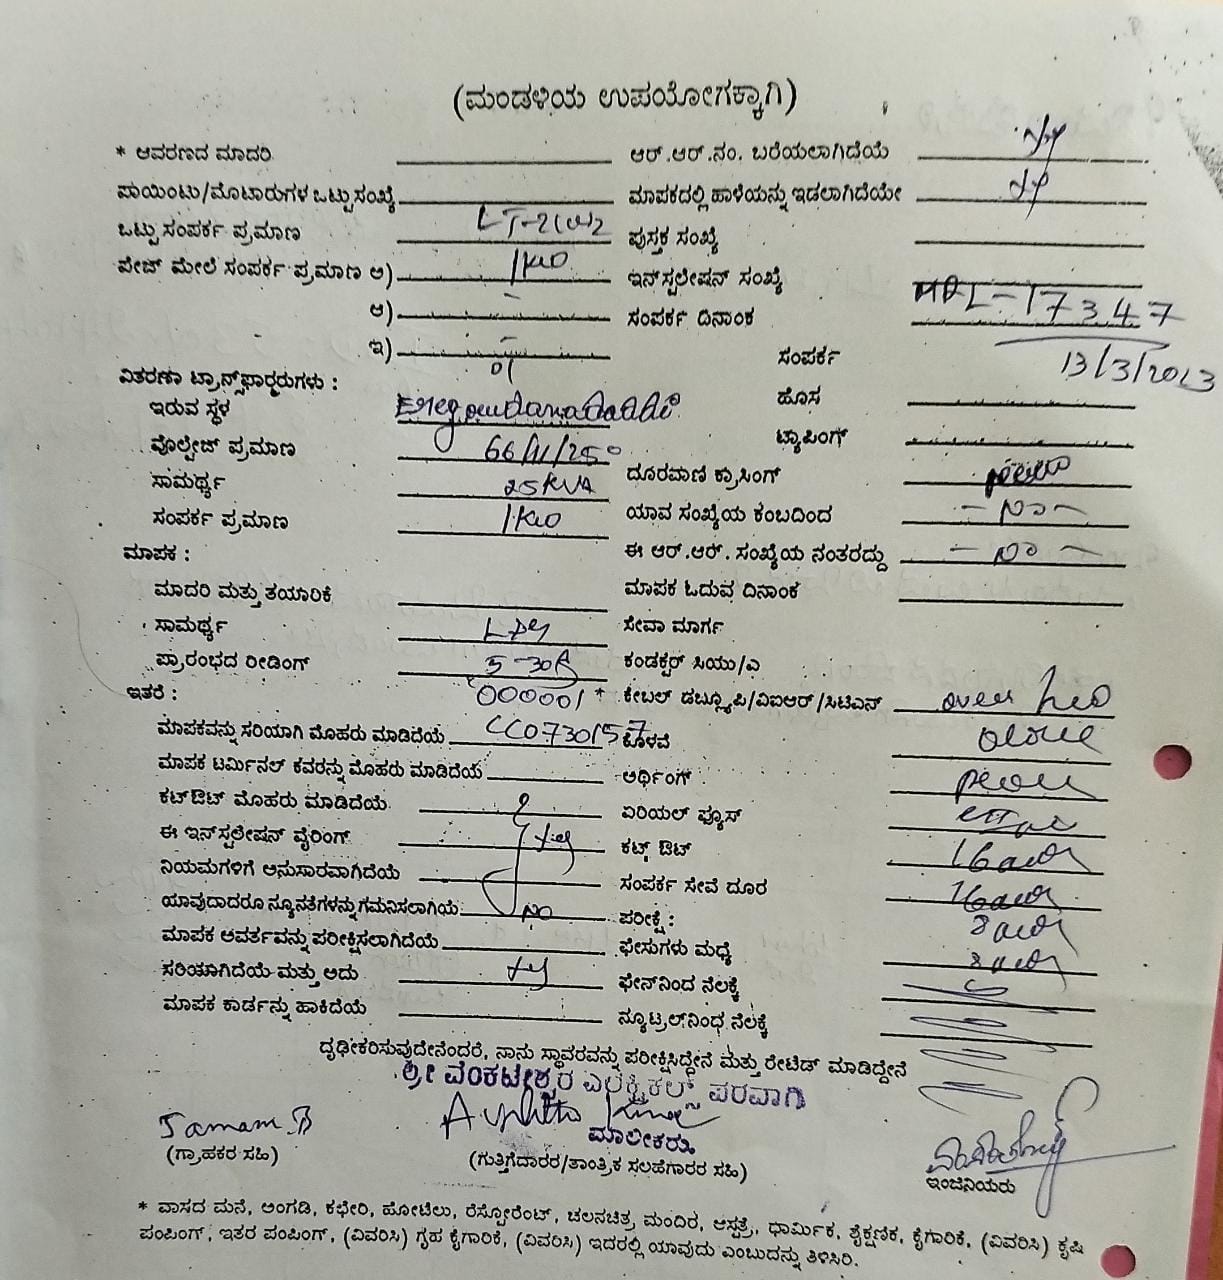 (ಮಂಡಳಿಯ ಉಪಯೋಗಕ್ಕಾಗಿ)
* ಆವರಣದ ಮಾದರಿ ಆರ್.ಆರ್.ನಂ. ಬರೆಯಲಾಗಿದೆಯೆ
ಪಾಯಿಂಟು/ಮೊಟಾರುಗಳ ಒಟ್ಟುಸಂಖ್ಯೆ ಮಾಪಕದಲ್ಲಿ ಹಾಳೆಯನ್ನು ಇಡಲಾಗಿದೆಯೇ
ಒಟ್ಟು ಸಂಪರ್ಕ ಪ್ರಮಾಣ ಪುಸ್ತಕ ಸಂಖ್ಯೆ
ಪೇಜ್ ಮೇಲೆ ಸಂಪರ್ಕ ಪ್ರಮಾಣ ಅ) 1KW ಇನ್‌ಸ್ಟಲೇಷನ್ ಸಂಖ್ಯೆ
ಆ) - ಸಂಪರ್ಕ ದಿನಾಂಕ 17347
ಇ) - ಸಂಪರ್ಕ 13/3/2023
ವಿತರಣಾ ಟ್ರಾನ್ಸ್‌ಫಾರ್ಮರುಗಳು : 01
ಇರುವ ಸ್ಥಳ ಹೊಸ
ವೊಲ್ಟೇಜ್ ಪ್ರಮಾಣ 66/11/250 ಟ್ಯಾಪಿಂಗ್
ಸಾಮರ್ಥ್ಯ 25KVA ದೂರವಾಣಿ ಕ್ರಾಸಿಂಗ್
ಸಂಪರ್ಕ ಪ್ರಮಾಣ 1KW ಯಾವ ಸಂಖ್ಯೆಯ ಕಂಬದಿಂದ - No -
ಮಾಪಕ : ಈ ಆರ್.ಆರ್. ಸಂಖ್ಯೆಯ ನಂತರದ್ದು - No -
ಮಾದರಿ ಮತ್ತು ತಯಾರಿಕೆ ಮಾಪಕ ಓದುವ ದಿನಾಂಕ
ಸಾಮರ್ಥ್ಯ ಸೇವಾ ಮಾರ್ಗ
ಪ್ರಾರಂಭದ ರೀಡಿಂಗ್ 5-30A ಕಂಡಕ್ಟರ್ ಸಿಯು/ಎ
ಇತರೆ : 000001 * ಕೇಬಲ್ ಡಬ್ಲ್ಯೂಪಿ/ವಿಐಆರ್/ಸಿಟಿಎನ್
ಮಾಪಕವನ್ನು ಸರಿಯಾಗಿ ಮೊಹರು ಮಾಡಿದೆಯೆ CC0730157 ಕೊಳವೆ
ಮಾಪಕ ಟರ್ಮಿನಲ್ ಕವರನ್ನು ಮೊಹರು ಮಾಡಿದೆಯೆ ಅರ್ಥಿಂಗ್
ಕಟ್‌ಔಟ್ ಮೊಹರು ಮಾಡಿದೆಯೆ ಏರಿಯಲ್ ಫ್ಯೂಸ್
ಈ ಇನ್‌ಸ್ಟಲೇಷನ್ ವೈರಿಂಗ್ ಕಟ್ಔಟ್
ನಿಯಮಗಳಿಗೆ ಅನುಸಾರವಾಗಿದೆಯೆ ಸಂಪರ್ಕ ಸೇವೆ ದೂರ
ಯಾವುದಾದರೂ ನ್ಯೂನತೆಗಳನ್ನುಗಮನಿಸಲಾಗಿಯೆ No ಪರೀಕ್ಷೆ :
ಮಾಪಕ ಆವರ್ತವನ್ನು ಪರೀಕ್ಷಿಸಲಾಗಿದೆಯೆ ಫೇಸುಗಳು ಮಧ್ಯೆ
ಸರಿಯಾಗಿದೆಯೆ ಮತ್ತು ಅದು ಫೇನ್‌ನಿಂದ ನೆಲಕ್ಕೆ
ಮಾಪಕ ಕಾರ್ಡನ್ನು ಹಾಕಿದೆಯೆ ನ್ಯೂಟ್ರಲ್‌ನಿಂಧ ನೆಲಕ್ಕೆ
ದೃಢೀಕರಿಸುವುದೇನೆಂದರೆ, ನಾನು ಸ್ಥಾವರವನ್ನು ಪರೀಕ್ಷಿಸಿದ್ದೇನೆ ಮತ್ತು ರೇಟಿಡ್ ಮಾಡಿದ್ದೇನೆ
ಶ್ರೀ ವೆಂಕಟೇಶ್ವರ ಎಲೆಕ್ಟ್ರಿಕಲ್ಸ್ ಪರವಾಗಿ
ಮಾಲೀಕರು
(ಗ್ರಾಹಕರ ಸಹಿ) (ಗುತ್ತಿಗೆದಾರರ/ತಾಂತ್ರಿಕ ಸಲಹೆಗಾರರ ಸಹಿ) ಇಂಜಿನಿಯರು
* ವಾಸದ ಮನೆ, ಅಂಗಡಿ, ಕಛೇರಿ, ಹೋಟೆಲು, ರೆಸ್ಟೋರೆಂಟ್, ಚಲನಚಿತ್ರ ಮಂದಿರ, ಆಸ್ಪತ್ರೆ, ಧಾರ್ಮಿಕ, ಶೈಕ್ಷಣಿಕ, ಕೈಗಾರಿಕೆ, (ವಿವರಿಸಿ) ಕೃಷಿ
ಪಂಪಿಂಗ್, ಇತರ ಪಂಪಿಂಗ್, (ವಿವರಿಸಿ) ಗೃಹ ಕೈಗಾರಿಕೆ, (ವಿವರಿಸಿ) ಇದರಲ್ಲಿ ಯಾವುದು ಎಂಬುದನ್ನು ತಿಳಿಸಿರಿ.